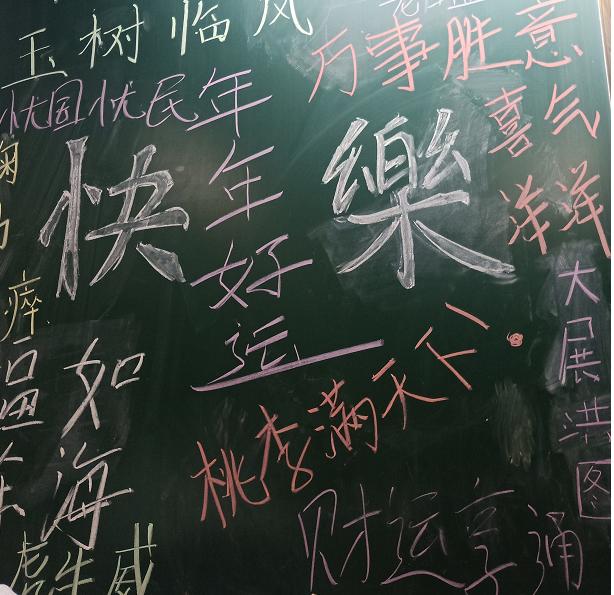 玉树临风
万事胜意
忧国忧民
年年好运
快樂
喜气洋洋
瘁
大展洪图
如海
桃李满天下!
财运亨通
虎生威